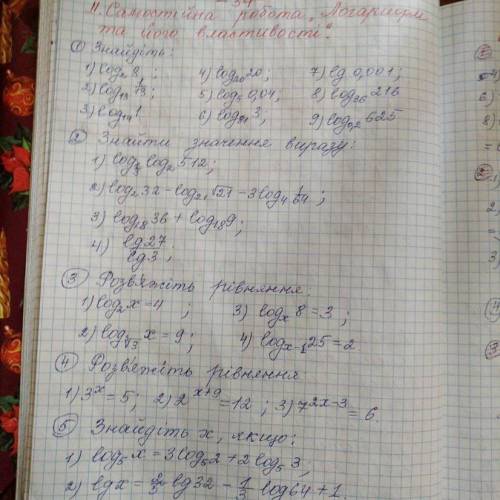 11. Самостійна робота „Логарифм
та його властивості"
① Знайдіть:
1) log₂8; 4) log₂₀20; 7) lg 0,001;
2) log₁₃ 1/13; 5) log₅ 0,04; 8) log₃₆ 216
3) log₁₄1 6) log₈₁ 3; 9) log₀,₂ 625
② Знайти значення виразу:
1) log₃ log₂ 512;
2) log₂32 - log₂₁ √21 - 3log₄ 1/64;
3) log₁₈36 + log₁₈9;
4) lg27/lg3;
③ Розв'яжіть рівняння:
1) log₂x = 4; 3) logₓ 8 = 3;
2) log√₃ x = 9; 4) logₓ₋₁25 = 2
④ Розв'яжіть рівняння
1) 3ˣ = 5; 2) 2ˣ⁺⁹ = 12; 3) 7²ˣ⁻³ = 6
⑤ Знайдіть x, якщо:
1) log₅x = 3log₅2 + 2log₅3,
2) lgx = 2/5 lg32 - 1/3 log64 + 1